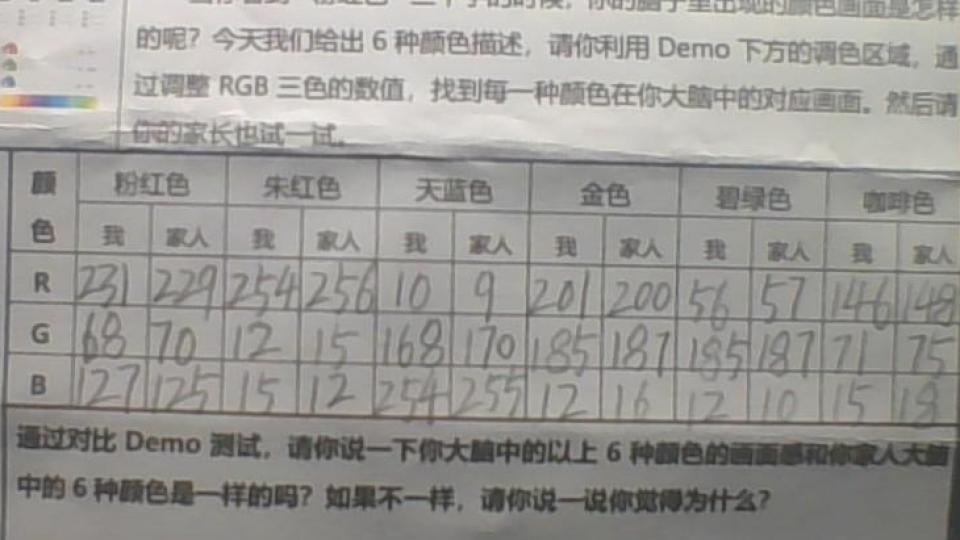 的呢？今天我们给出 6 种颜色描述，请你利用 Demo 下方的调色区域，通
过调整 RGB 三色的数值，找到每一种颜色在你大脑中的对应画面。然后请
你的家长也试一试。
颜色 粉红色 朱红色 天蓝色 金色 碧绿色 咖啡色
我 家人 我 家人 我 家人 我 家人 我 家人 我 家人
R 231 229 254 256 10 9 201 200 56 57 146 148
G 68 70 12 15 168 170 185 187 185 187 71 75
B 127 125 15 12 254 255 12 16 12 10 15 18
通过对比 Demo 测试，请你说一下你大脑中的以上 6 种颜色的画面感和你家人大脑
中的 6 种颜色是一样的吗？如果不一样，请你说一说你觉得为什么？